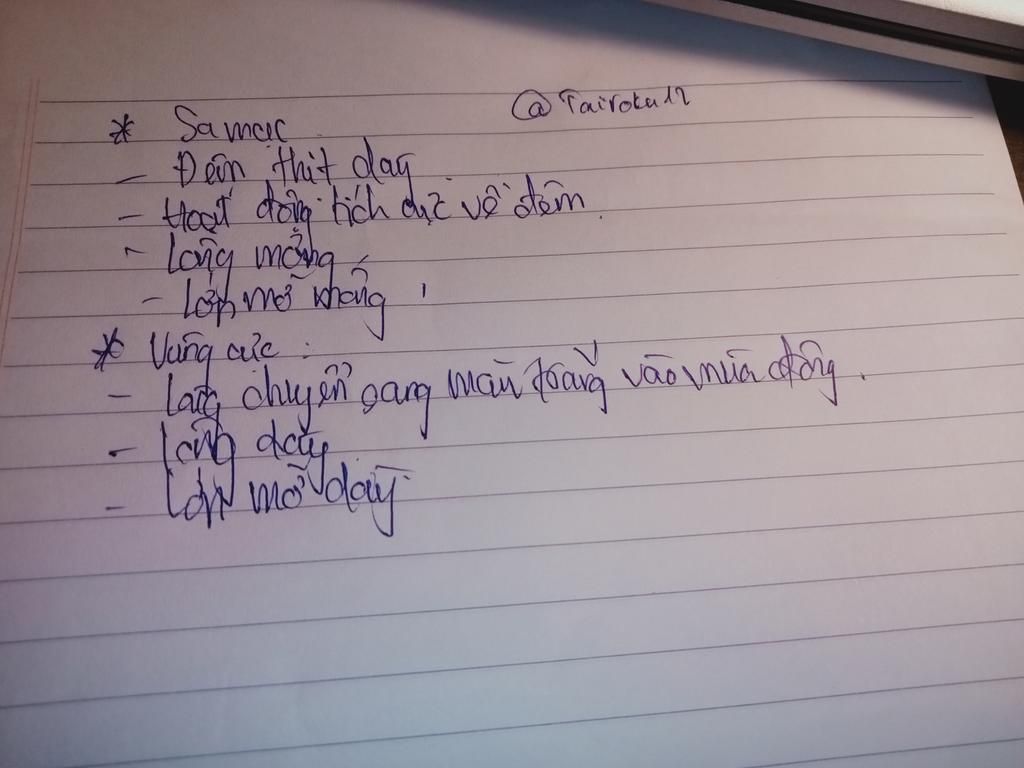 * Sa mạc @Tairoku12
- Đệm thịt dày
- Hoạt động tích cực về đêm.
- Lông mỏng
- Lớp mỡ không
* Vùng cực :
- Lông chuyển sang màu trắng vào mùa đông.
- Lông dày
- Lớp mỡ dày